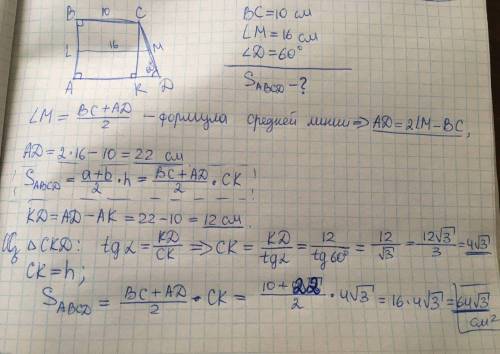 B 10 C
L 16 M
60°
A K D
BC=10 см
LM=16 см
∠D=60°
S_ABCD-?
LM = (BC+AD)/2 - формула средней линии ⇒ AD=2LM-BC,
AD=2·16-10=22 см
! S_ABCD = (a+b)/2 · h = (BC+AD)/2 · CK !
KD=AD-AK=22-10=12 см.
ΔCKD: tg2 = KD/CK ⇒ CK = KD/tg2 = 12/tg60° = 12/√3 = 12√3/3 = 4√3
CK=h;
S_ABCD = (BC+AD)/2 · CK = (10+22)/2 · 4√3 = 16·4√3 = 64√3
см²